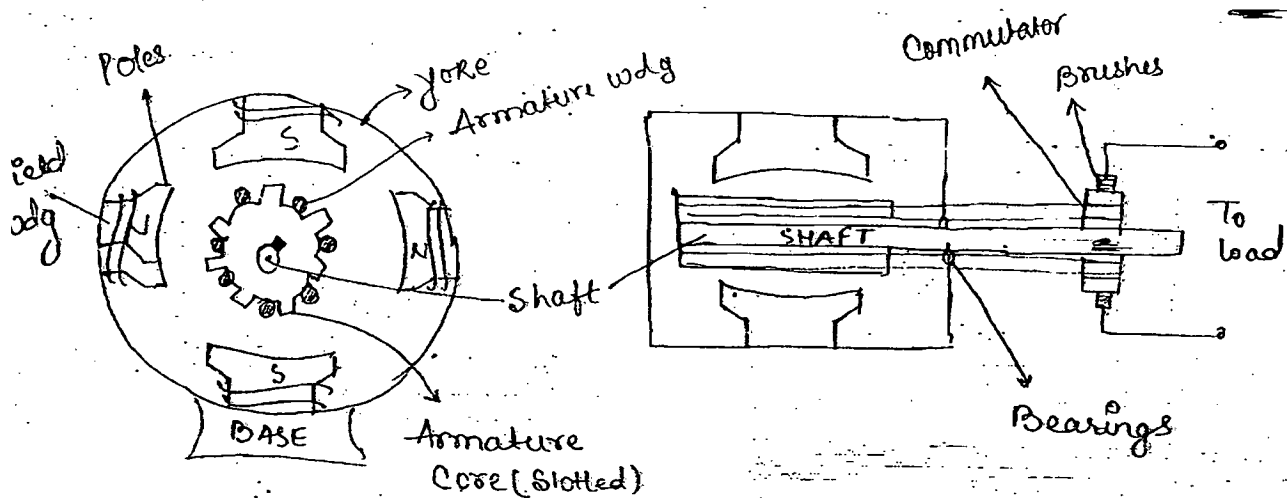 Poles
yoke
Armature wdg
S
ield
wdg
N
N
Shaft
S
BASE
Armature
Core (Slotted)
Commutator
Brushes
SHAFT
To
load
Bearings